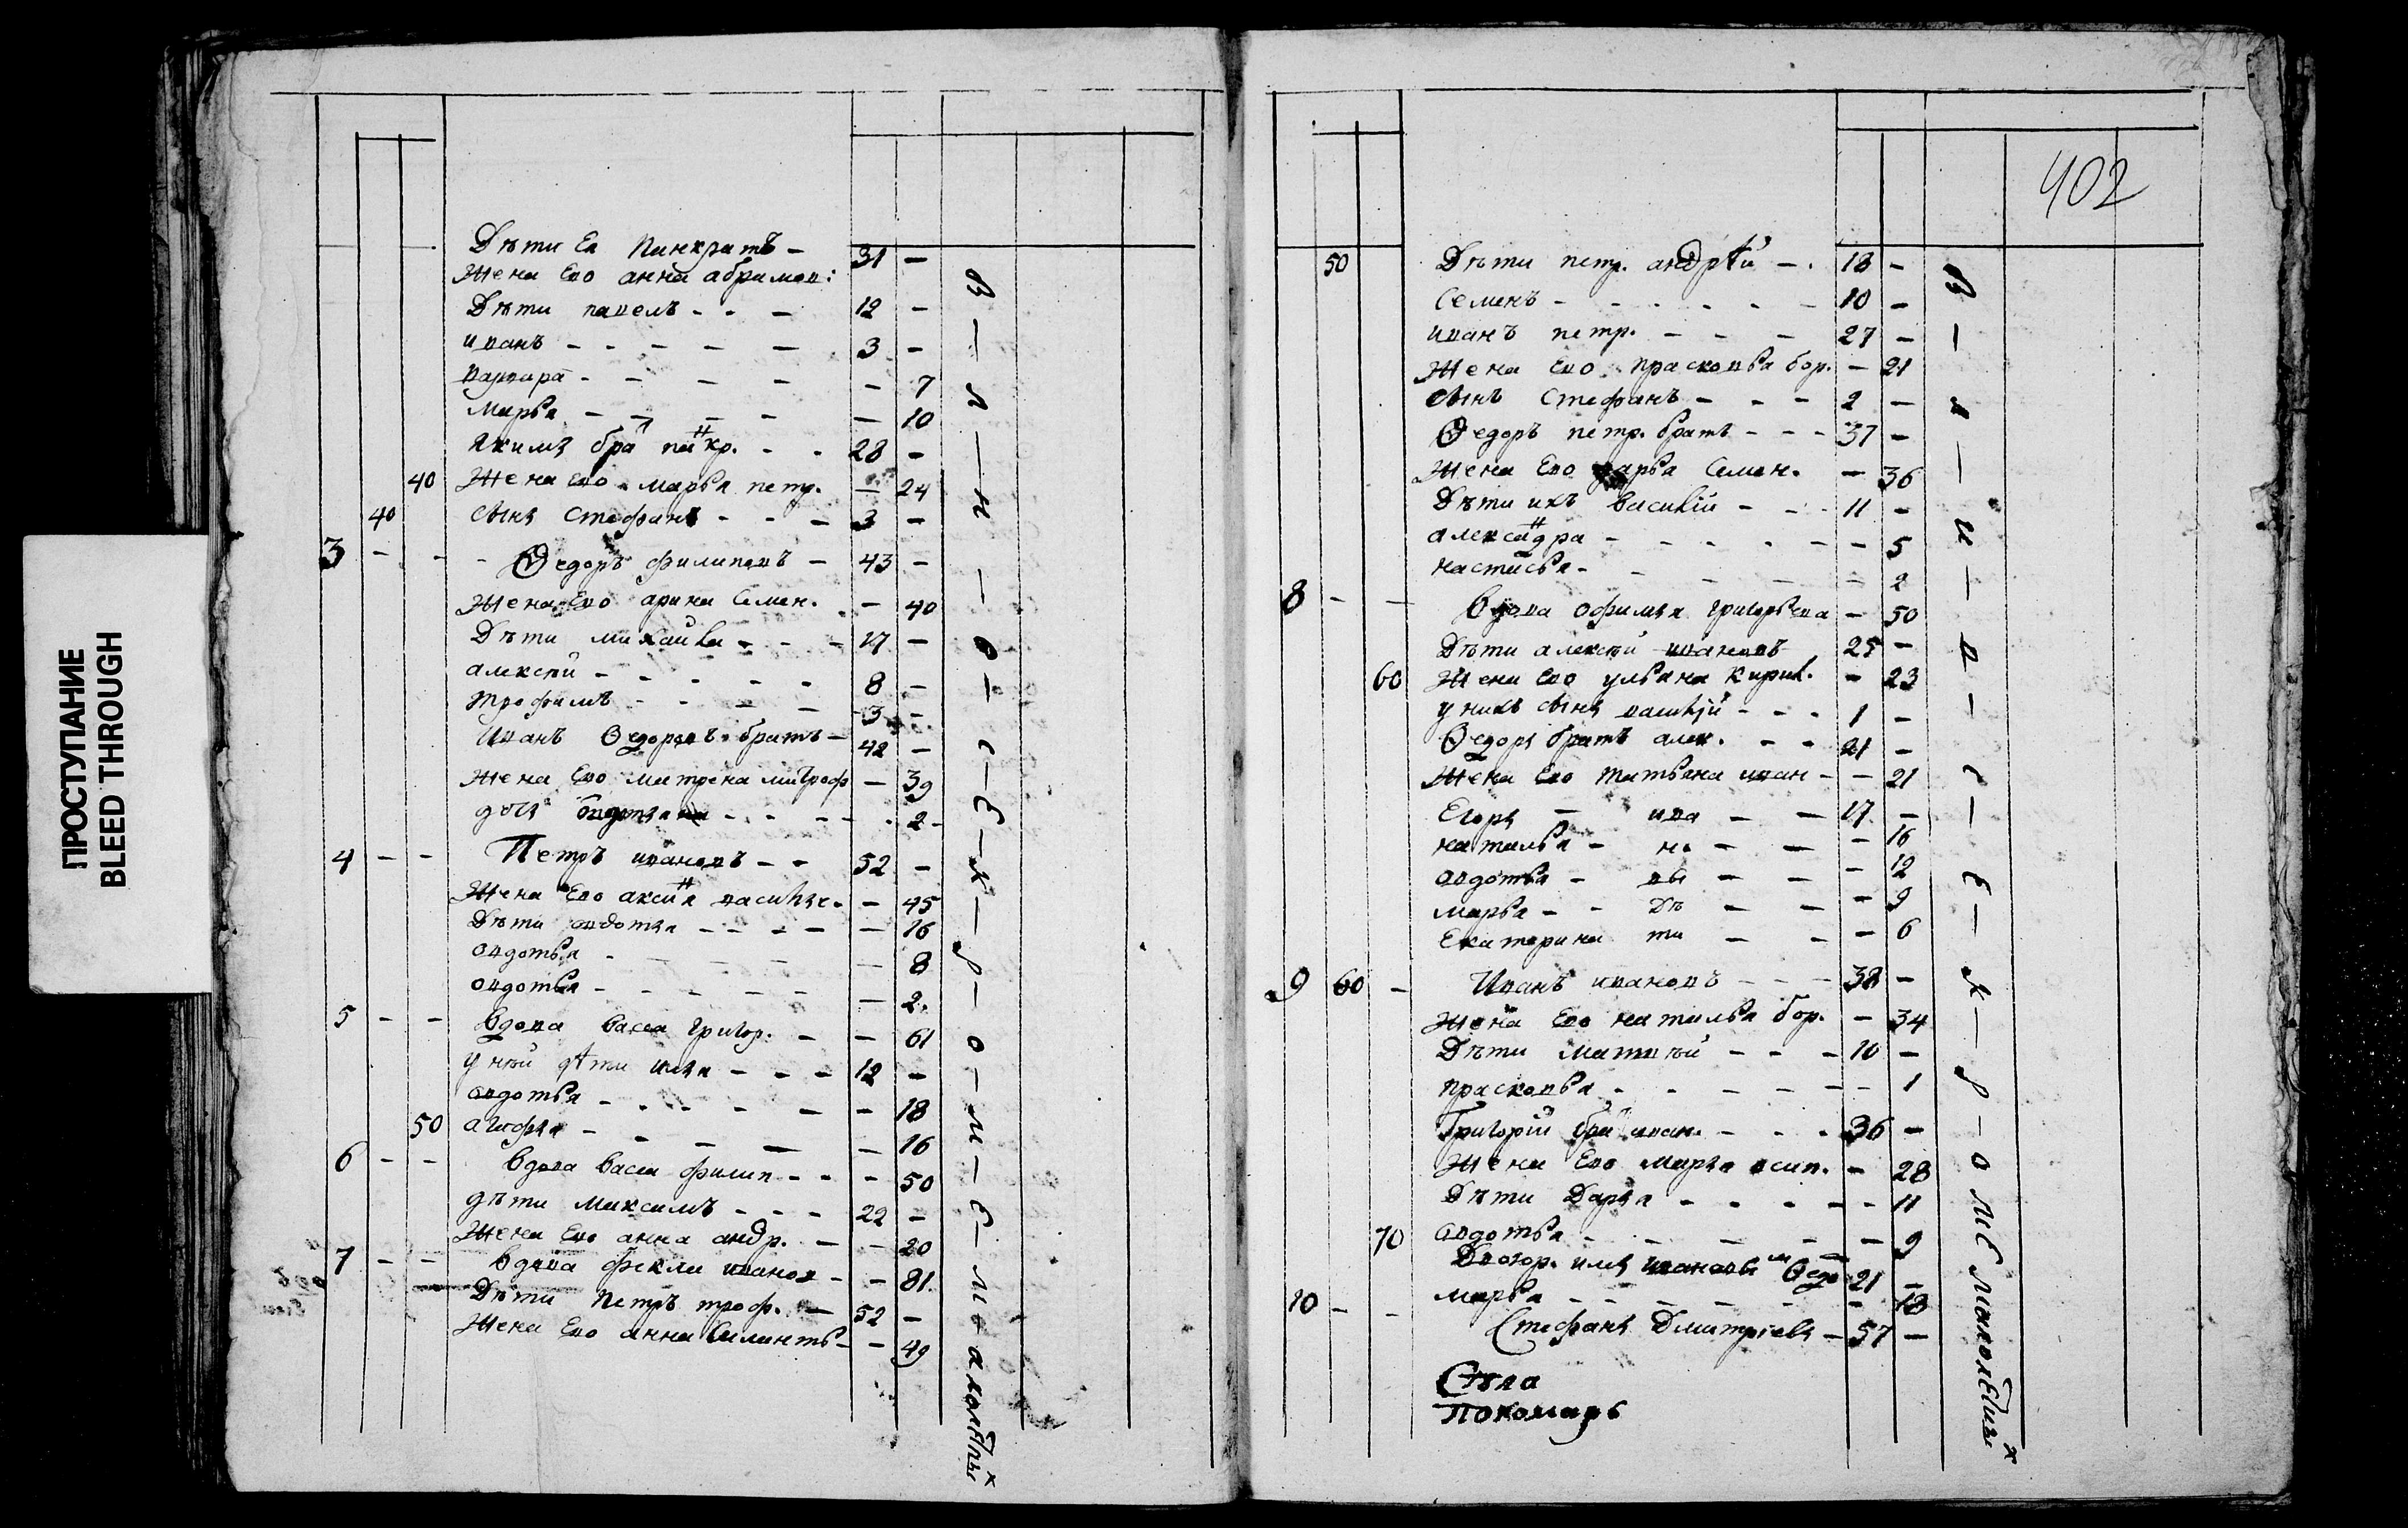 ПРОСТУПАНИЕ
BLEED THROUGH
Дѣти Ея Панкратъ – 31 –
Жена Ево анна абрамов:
Дѣти павелъ - - – 12 –
иванъ - - – – – 3 –
варвара - – – – – 7
марья – – – – – 10
яким бра панкр. - - 28 –
40 Жена Ево марья петр. – 24
40 сынъ Стефанъ - - – 3 –
3 – - Ѳедоръ филиповъ – 43 –
Жена Ево арина Семен. – 40
Дѣти михаила - - – 17 –
алексѣй - - - - - 8 –
трофимъ - - – – 3 –
Иванъ Ѳедоровъ братъ – 42 –
Жена Ево матрена митроф – 39
дочь - - - - 2 -
4 – – Петръ ивановъ - - 52 –
Жена Ево аксинья василье. – 45
Дѣти авдотья - - - – – 16
авдотья - – – – – 8
авдотья - - – - - – 2.
5 – – Вдова Васса григор. – – 61
у ней дѣти илья - - – 12 –
авдотья - - - – – – 18
50 агафья - – – – – 16
6 – – Вдова Васса филип - - – 50
дѣти Максимъ - - – 22 –
Жена Ево анна андр. – – 20
7 – – Вдова фекла иванов – – 81
Дѣти Петръ троф. – 52 –
Жена Ево анна – 49
В – л – и – о – с – Е – К – р – о – м – Е – м – а
402
50 Дѣти петр. андрѣй – . 18 –
Семенъ - - - - - – 10 –
иванъ петр. – - – 27 –
Жена Ево прасковья бор. – 21
сынъ Стефанъ – - – 2 –
Ѳедоръ петр. братъ - - - 37 –
Жена Ево дарья Семен. – 36
Дѣти ихъ Василiй - - - 11 –
александра - - - - – – 5
настасья - - – – – 2
8 – – Вдова офимья григорьева – 50
Дѣти алексѣй ивановъ 25 –
60 Жена Ево ульяна Кирил. – 23
у нихъ сынъ василiй - - - 1 –
Ѳедоръ братъ алек. - - 21 –
Жена Ево татьяна иван - – 21
Егоръ – ива – – 17 –
наталья – но – – – 16
авдотья – вы – – – 12
марья – - дѣ – – – 9
Екатерина ти – – – 6
9 60 – Иванъ ивановъ - - – 38 –
Жена Ево наталья бор. – 34
Дѣти Матвѣй - - – 10 –
прасковья - - - - – – 1
Григорiй бра иван. – - - 36 –
Жена Ево марья осип. – 28
Дѣти Дарья - - - – – 11
70 авдотья - - - – – 9
Двоюр. илья Ѳедо 21 –
марья – – – – – – 18
10 – – Стефанъ Дмитрiевъ – 57 –
Села
Покомарь